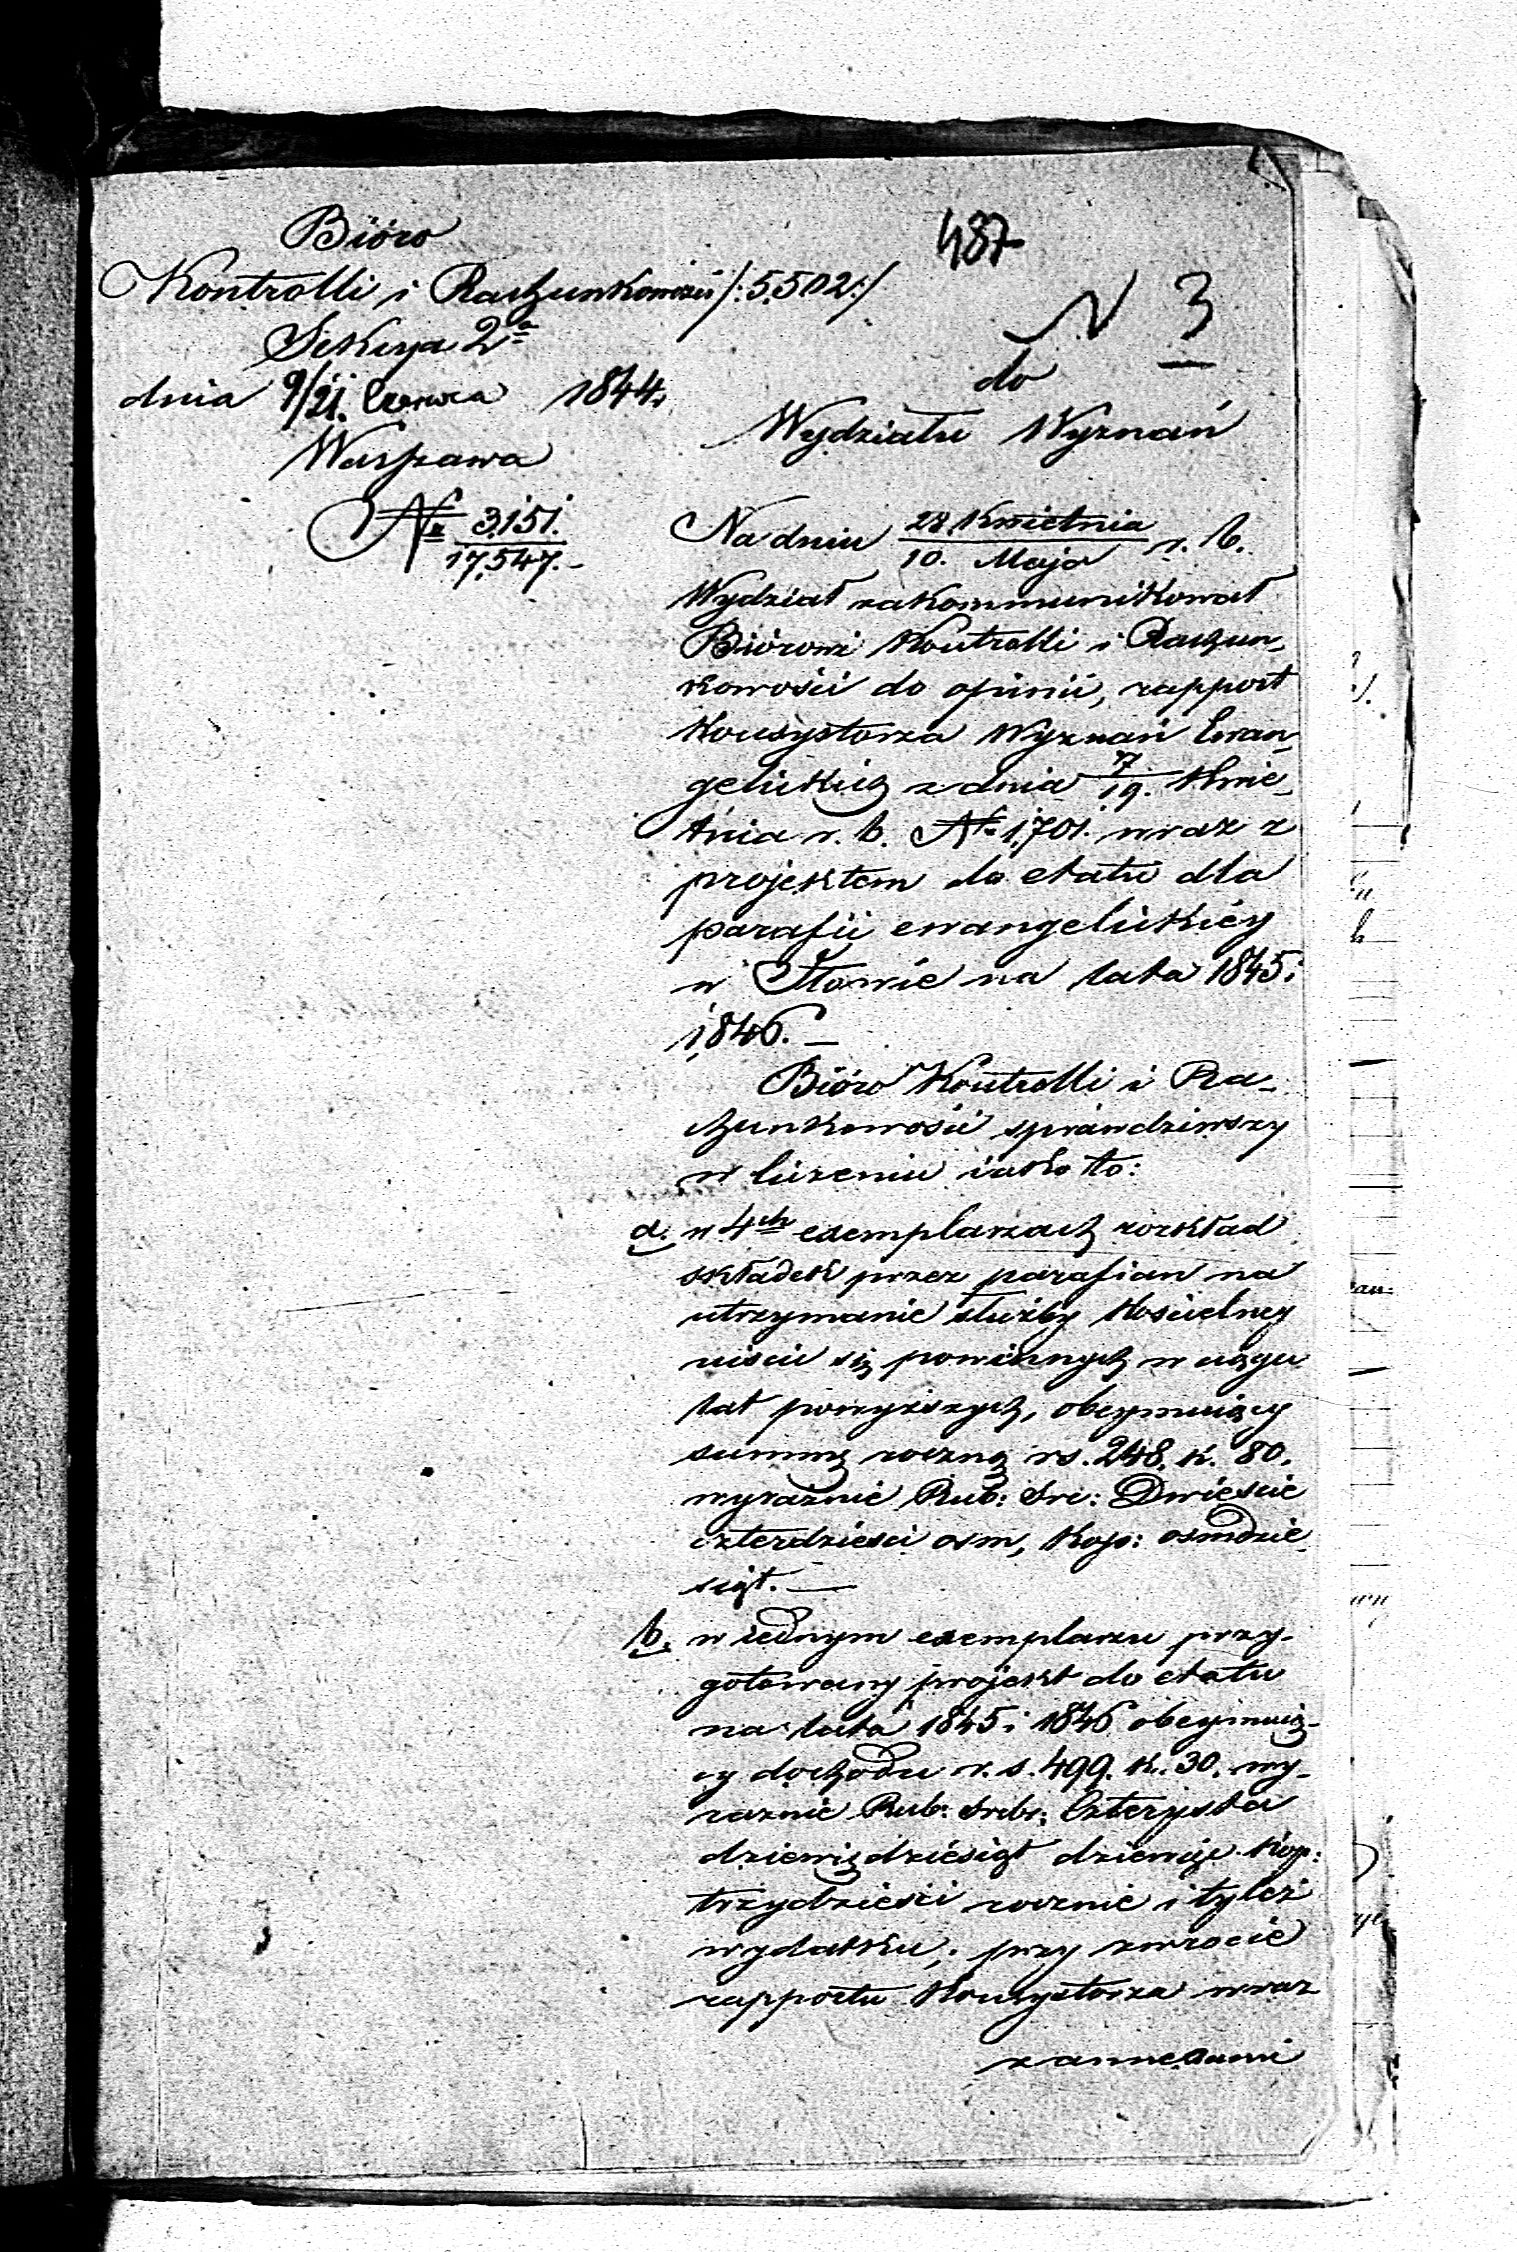 Bióro
Kontrolli i Rachunkowości /:5,502:/
Sekcya 2ª
dnia 9/21. Czerwca 1844.
Warszawa
№ 3,151./17,547.-
487
N 3
do
Wydziału Wyznań
Na dniu 28 Kwietnia/10. Maja r. b.
Wydział zakommunikował
Biórowi Kontrolli i Rachun-
kowości do opinii, rapport
Konsystorza Wyznań Ewan-
gelickich z dnia 7/19. Kwie-
tnia r. b. № 1,701. wraz z
projektem do etatu dla
parafii ewangelickiéy
w Iłowie na lata 1845 i
1,846. —
Bióro Kontrolli i Ra-
chunkowości sprawdziwszy
w liczeniu iako to:
a. w 4ch exemplarzach rozkład
składek przez parafian na
utrzymanie służby Kościelney
uiścić się powinnych w ciągu
lat powyższych, obeymuiący
summę roczną rs. 248. k. 80.
wyraźnie Rub: Sre: Dwieście
czterdzieści osm, Kop: osmdzie-
siąt. —
b. w iednym exemplarzu przy-
gotowany projekt do etatu
na lata 1845 i 1846 obeymuią-
cy dochodu r. s. 499. k. 30. wy-
raźnie Rub: Srebr: Czterysta
dziewięćdziesiąt dziewięć Kop:
trzydzieści rocznie i tyleż
wydatku; przy zwrocie
rapportu Konsystorza wraz
z annexami